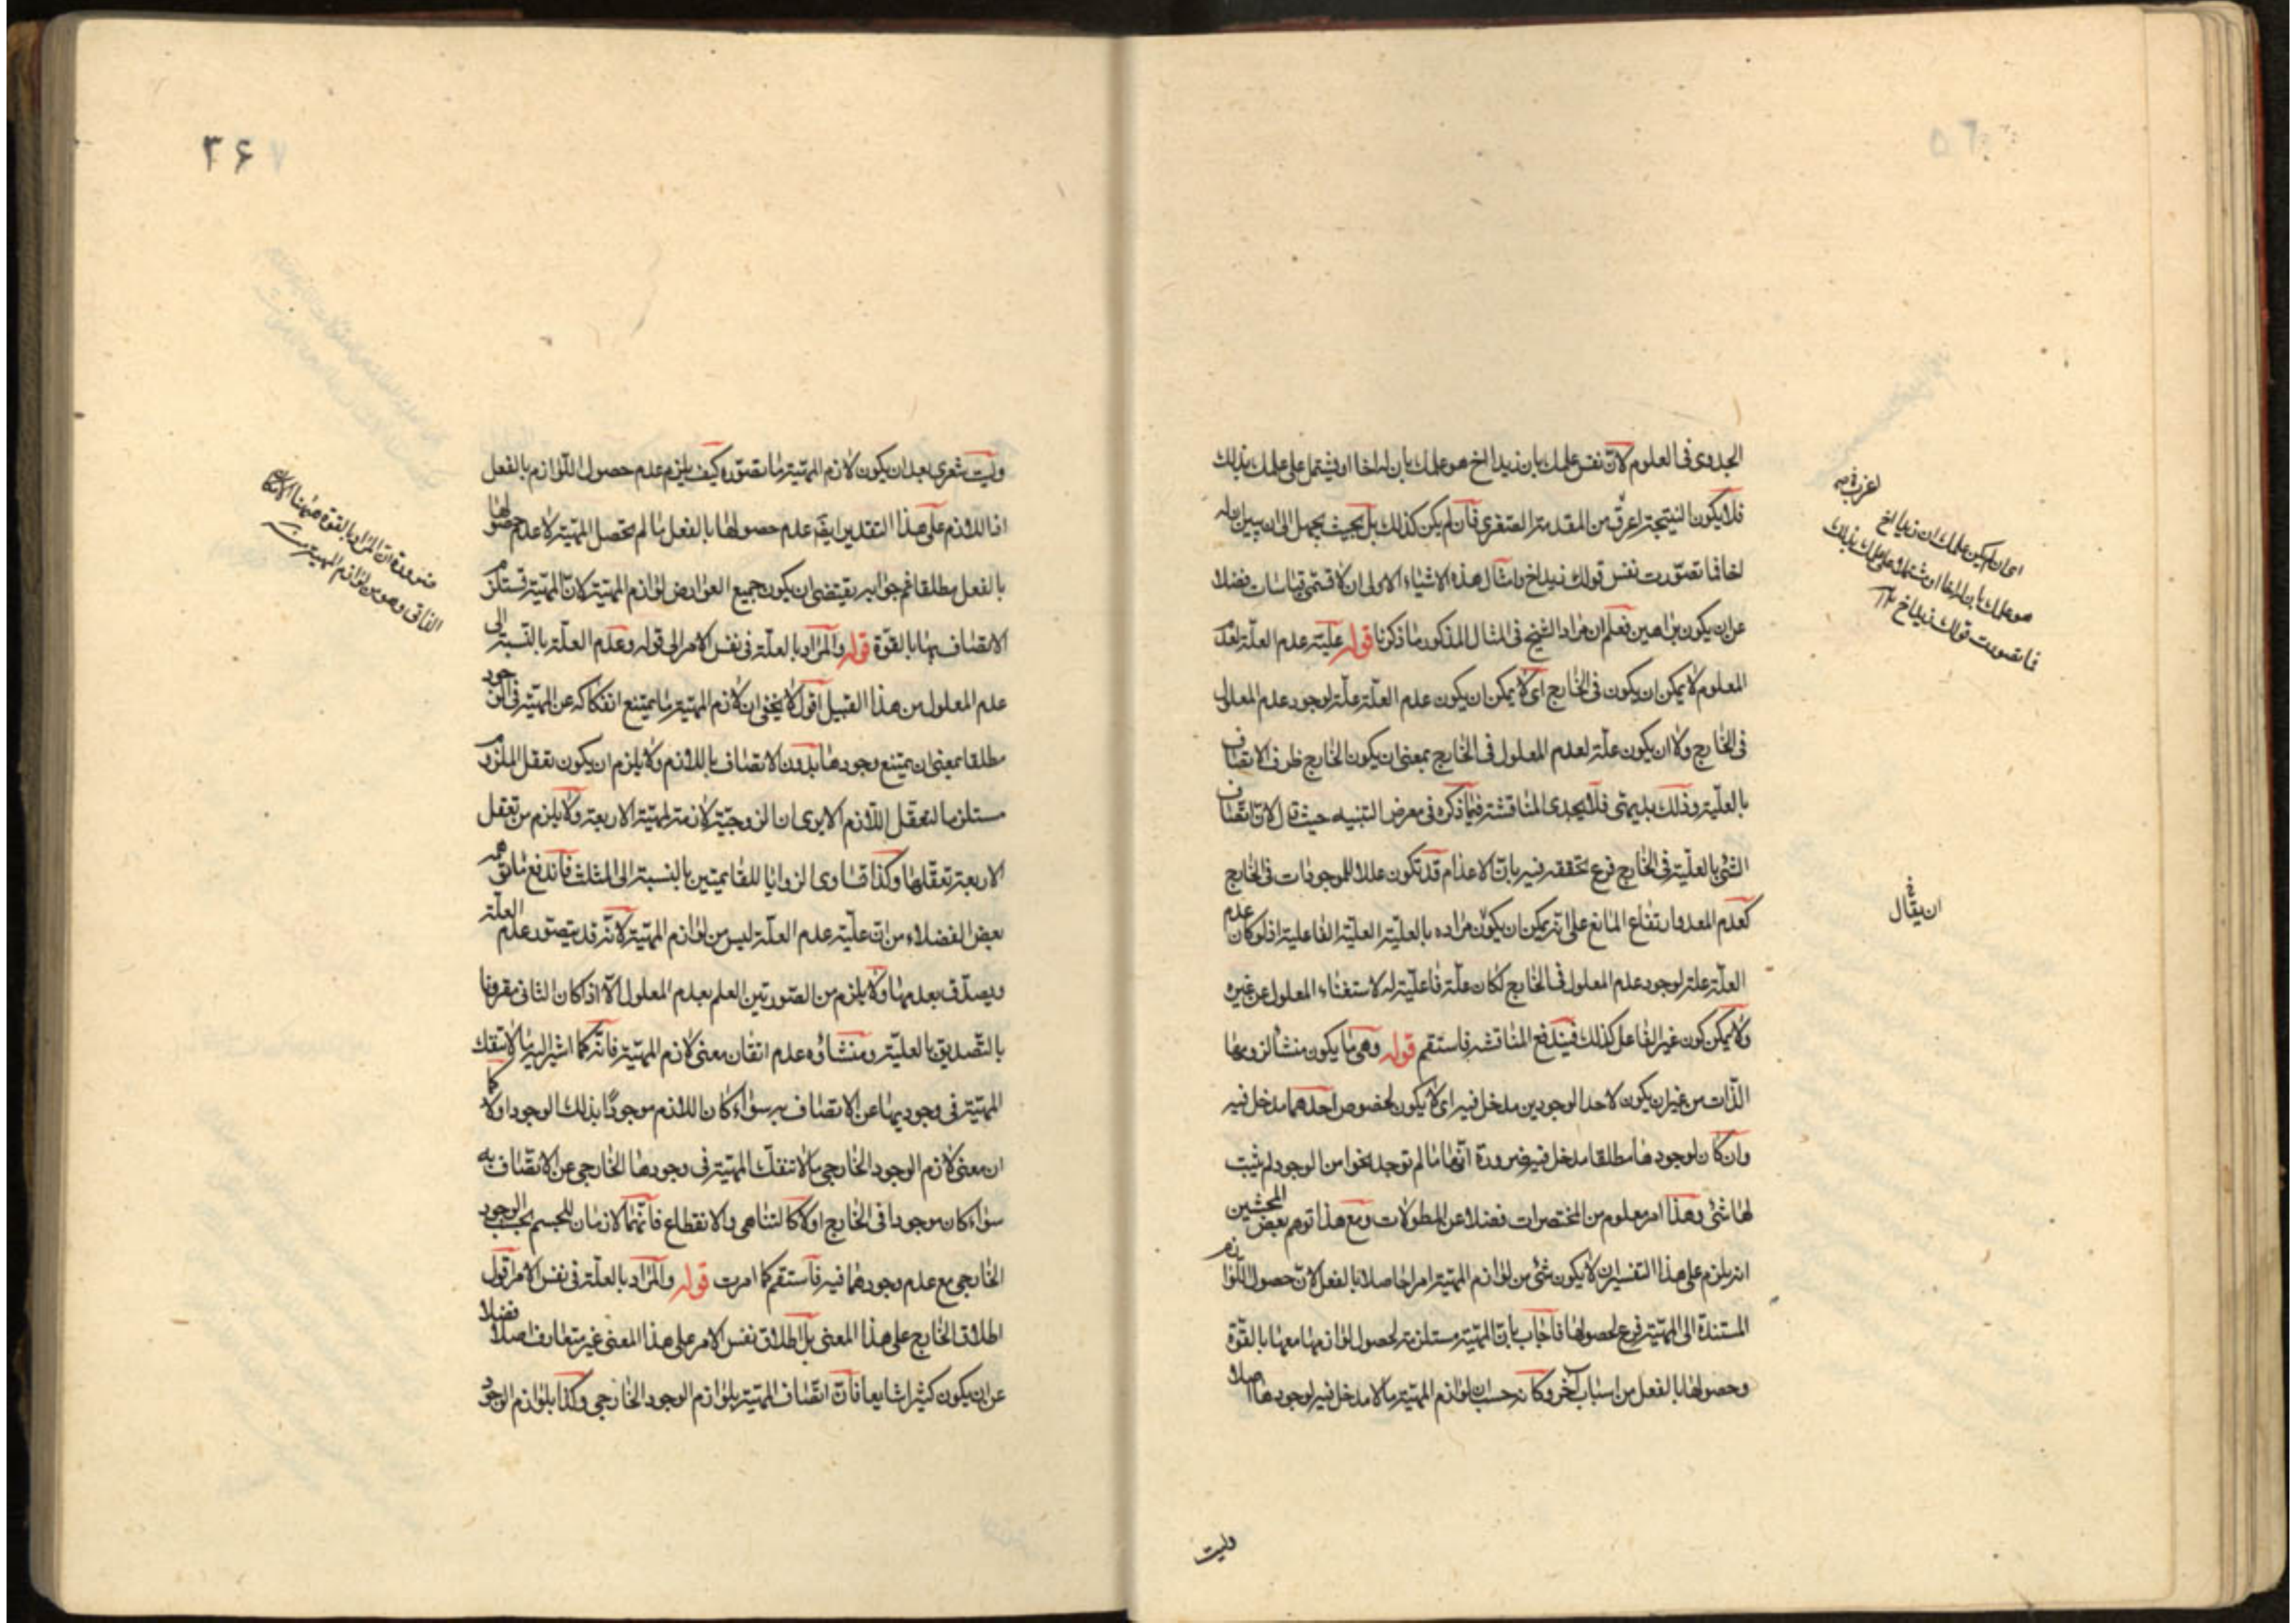 الجدوى فى العلوم لانّ نفس علمك بان زيدا اخ هو علمك بان له اخا او يشتمل على علمك بذلك
فلا يكون النتيجة اعرف من المقدمة الصغرى فان لم يكن كذلك بل بحيث يجهل الى ان يبين ان له
اخا فما تصوّرت نفس قولك زيد اخ وامثال هذه الاشياء الاولى ان لا تسمّى قياسات فضلا
عن ان يكون براهين فعلم ان مراد الشيخ فى المثال المذكور ما ذكرنا قوله علّية عدم العلّة لعدم
المعلوم لا يمكن ان يكون فى الخارج اى لا يمكن ان يكون عدم العلّة علّة لوجود عدم المعلول
فى الخارج ولا ان يكون علّة لعدم المعلول فى الخارج بمعنى ان يكون الخارج ظرف الاتصاف
بالعلّية وذلك بديهىّ فلا يجدى المناقشة فيما ذكره فى معرض التنبيه حيث قال لانّ اتّصاف
الشئ بالعلّية فى الخارج فرع تحققه فيه بانّ الاعدام قد تكون عللا للموجودات فى الخارج
كعدم المعد وارتفاع المانع على انّه يمكن ان يكون مراده بالعليّة العليّة الفاعلية اذ لو كان عدم
العلّة علة لوجود عدم المعلول فى الخارج لكان علّة فاعليّة له لاستغناء المعلول عن غيره
ولا يمكن كون غير الفاعل كذلك فيندفع المناقشة فاستقم قوله وهى ما يكون منشأ لزومها
الذّات من غير ان يكون لاحد الوجودين مدخل فيه اى لا يكون لخصوص احدهما مدخل فيه
وان كان لوجودها مطلقا مدخل فيه ضرورة انّها ما لم توجد نحوا من الوجود لم يثبت
لها شئ وهذا امر معلوم من المختصرات فضلا عن المطولات ومع هذا توهم بعض المحشين
انه يلزم على هذا التفسير ان لا يكون شئ من لوازم المهيّة امرا حاصلا بالفعل لانّ حصول اللّوازم
المستندة الى المهيّة فرع لحصولها فاجاب بانّ المهيّة مستلزمة لحصول لوازمها معها بالقوّة
وحصولها بالفعل من اسباب آخر وكانه حسب ان لوازم المهيّة ما لا مدخل فيه لوجودها اصلا
وليت
اى ان لم يكن علمك ان زيدا اخ
هو علمك بان له اخا او يشتمل على علمك بذلك
فما تصورت قولك زيد اخ ١٢
ان يقال
٣۶
وليت شعرى بعد ان يكون لازم المهيّة ما تصوّره كيف يلزم عدم حصول اللّوازم بالفعل
اذ اللازم على هذا التقدير ايضا عدم حصولها بالفعل ما لم تحصل المهيّة لا عدم حصولها
بالفعل مطلقا ثم جوابه يقتضى ان يكون جميع العوارض لوازم المهيّة لانّ المهيّة تستلزم
الاتصاف بها بالقوّة قوله والمراد بالعلّة فى نفس الامر الى قوله وعدم العلّة بالنّسبة الى
عدم المعلول من هذا القبيل اقول لا يخفى ان لازم المهيّة ما يمتنع انفكاكه عن المهيّة فى الوجود
مطلقا بمعنى ان يمتنع وجودها بدون الاتصاف باللازم ولا يلزم ان يكون تعقل الملزوم
مستلزما لتعقل اللّازم الا يرى ان الزوجيّة لازمة لمهيّة الاربعة ولا يلزم من تعقل
الاربعة تعقّلها وكذا تساوى الزوايا للقائمتين بالنسبة الى المثلث فاندفع ما توهمه
بعض الفضلاء من انّ علّية عدم العلّة ليس من لوازم المهيّة لانّه قد يتصوّر عدم العلّة
ويصدّق بعدمها ولا يلزم من الصّورتين العلم بعدم المعلول الّا اذا كان الثانى مقرونا
بالتّصديق بالعليّة ومنشاؤه عدم اتقان معنى لازم المهيّة فانّه كما اشير اليه ما لا تنفك
المهيّة فى وجوديها عن الاتصاف به سواء كان اللازم موجودا بذلك الوجود او لا كما
ان معنى لازم الوجود الخارجى ما لا تنفكّ المهيّة فى وجودها الخارجى عن الاتّصاف به
سواء كان موجودا فى الخارج او لا كالتناهى والانقطاع فانّهما لازمان للجسم بحسب الوجود
الخارجى مع عدم وجودهما فيه فاستقم كما امرت قوله والمراد بالعلّة فى نفس الامر اقول
اطلاق الخارج على هذا المعنى بل اطلاق نفس الامر على هذا المعنى غير متعارف اصلا فضلا
عن ان يكون كثيرا شايعا فانّ اتّصاف المهيّة بلوازم الوجود الخارجى وكذا بلوازم الوجود
ضرورة ان المراد بالقوة ههنا الامكان
الذاتى وهو من لوازم المهية